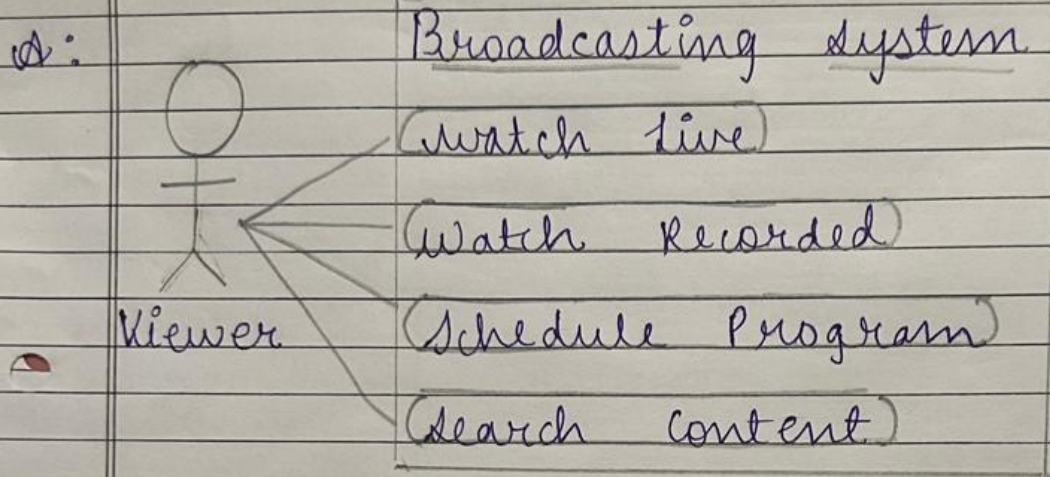 A:
Broadcasting system
Watch Live
Watch Recorded
Schedule Program
Viewer
Search Content